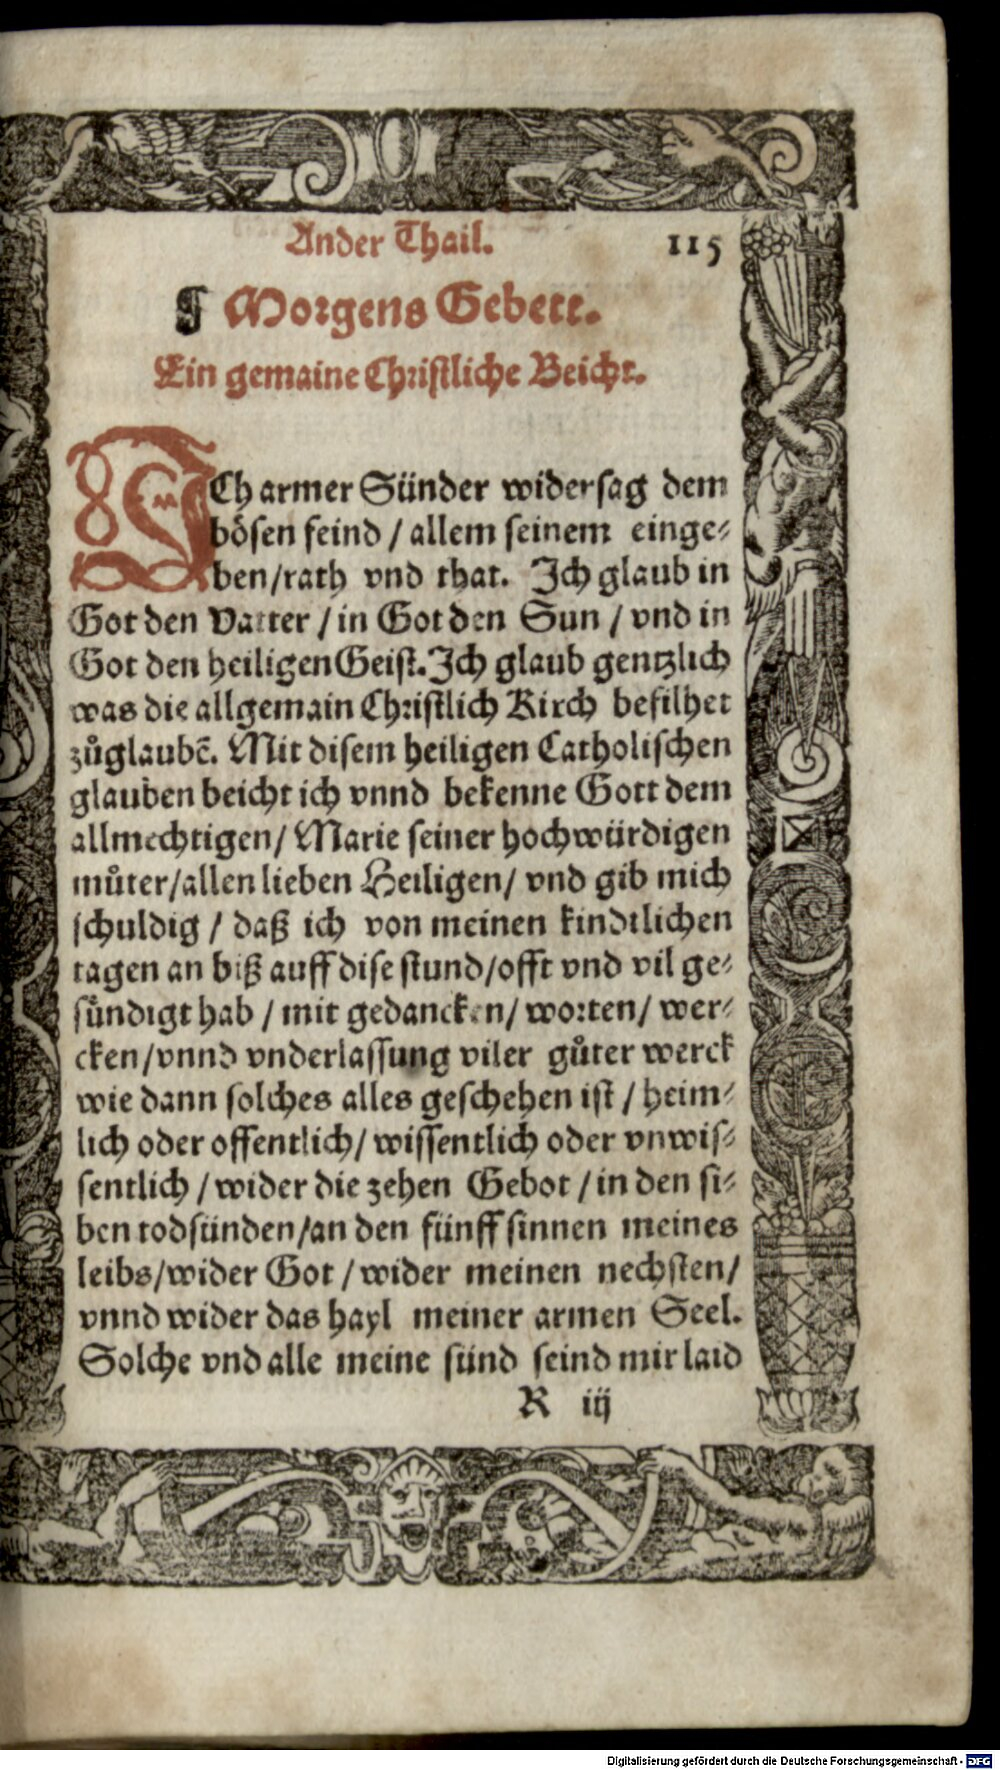 Ander Thail. 115
¶ Morgens Gebett.
Ein gemaine Christliche Beicht.
ICh armer Sünder widersag dem
bösen feind / allem seinem einge⸗
ben/rath vnd that. Ich glaub in
Got den Vatter / in Got den Sun / vnd in
Got den heiligen Geist. Ich glaub gentzlich
was die allgemain Christlich Kirch befilhet
zůglaubē. Mit disem heiligen Catholischen
glauben beicht ich vnnd bekenne Gott dem
allmechtigen/ Marie seiner hochwürdigen
můter/allen lieben Heiligen/ vnd gib mich
schuldig / daß ich von meinen kindtlichen
tagen an biß auff dise stund/offt vnd vil ge⸗
sündigt hab / mit gedancken/ worten/ wer⸗
cken/vnnd vnderlassung viler gůter werck
wie dann solches alles geschehen ist / heim⸗
lich oder offentlich/ wissentlich oder vnwis⸗
sentlich / wider die zehen Gebot / in den si⸗
ben todsünden/an den fünff sinnen meines
leibs/wider Got / wider meinen nechsten/
vnnd wider das hayl meiner armen Seel.
Solche vnd alle meine sünd seind mir laid
R iij
Digitalisierung gefördert durch die Deutsche Forschungsgemeinschaft - DFG